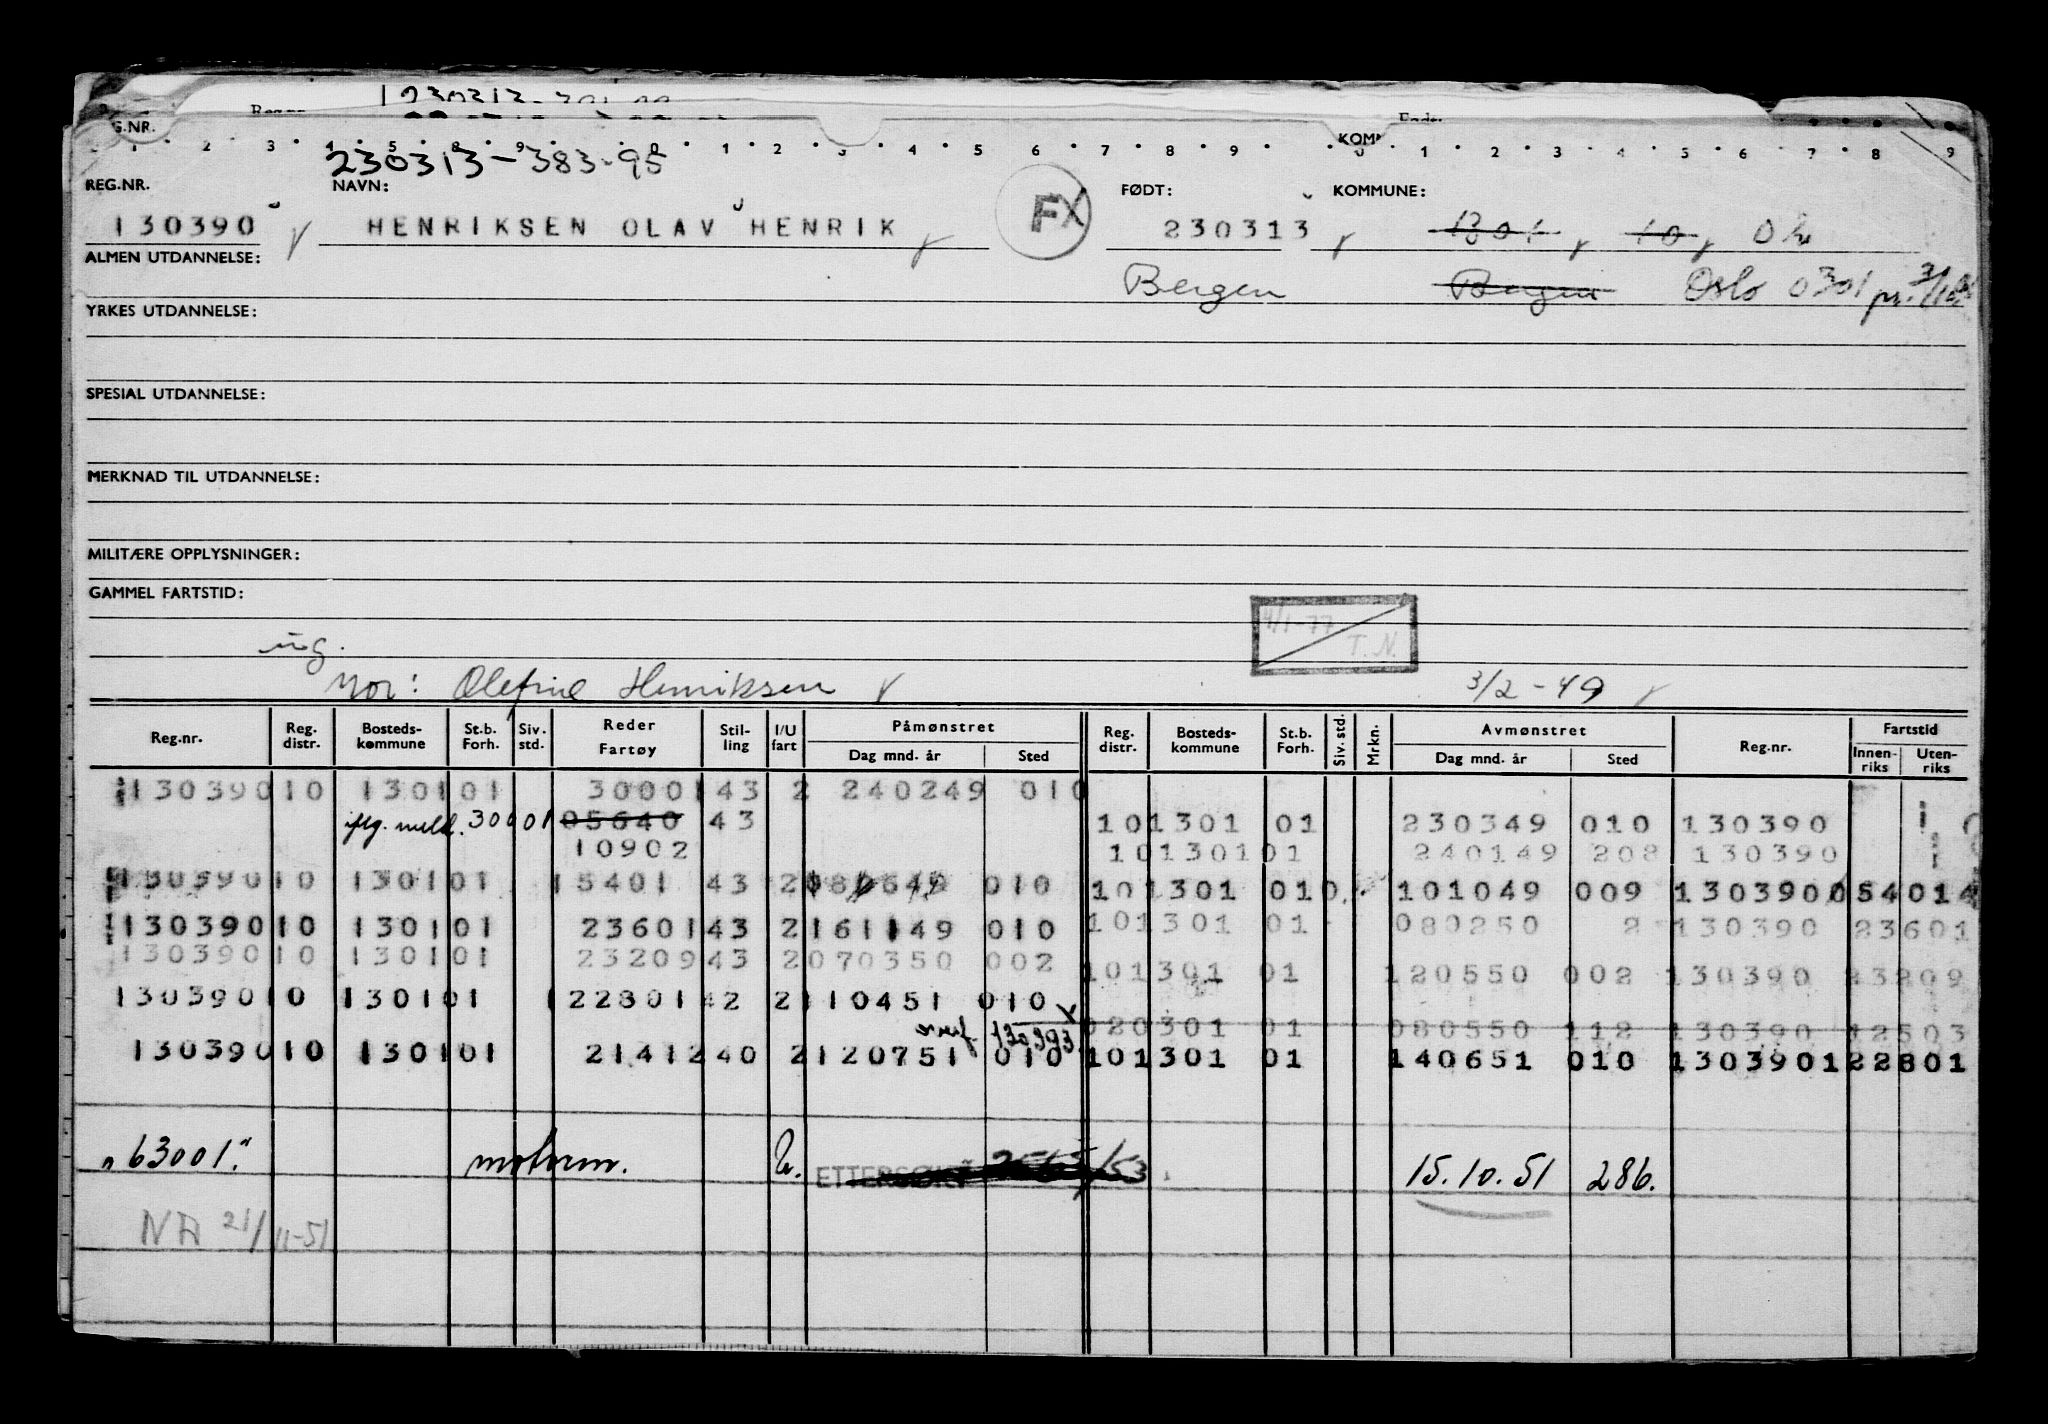 G.NR.
1 2 3 4 5 8 9 0 1 2 3 4 5 6 7 8 9 0 1 2 3 4 5 6 7 8 9
230313-383-95
REG.NR. NAVN: FX FØDT: KOMMUNE:
130390 HENRIKSEN OLAV HENRIK 230313 1301 10
ALMEN UTDANNELSE: Bergen Bergen Oslo 0301
YRKES UTDANNELSE:
SPESIAL UTDANNELSE:
MERKNAD TIL UTDANNELSE:
MILITÆRE OPPLYSNINGER:
GAMMEL FARTSTID:
4/1-77
T.N.
ug.
Mor: Olefine Henriksen 3/2-49
Reg.nr. Reg. distr. Bosteds-kommune St.b. Forh. Siv. std. Reder Fartøy Stil-ling I/U fart Påmønstret Dag mnd. år Sted Reg. distr. Bosteds-kommune St.b. Forh. Siv. std. Mrkn. Avmønstret Dag mnd. år Sted Reg.nr. Fartstid Innen-riks Uten-riks
130390 10 1301 01 30001 43 2 240249 010
30001 05640 43 10 1301 01 230349 010 130390
10902 10 1301 01 240149 208 130390
130390 10 1301 01 15401 43 2 080649 010 10 1301 01 101049 009 130390 05401
130390 10 1301 01 23601 43 2 161149 010 10 1301 01 080250 2 130390 23601
130390 10 1301 01 23209 43 2 070350 002 10 1301 01 120550 002 130390 23209
130390 10 1301 01 122801 42 2 110451 010
130393 020301 01 080550 112 130390 12503
130390 10 1301 01 21412 40 2 120751 010 10 1301 01 140651 010 130390 122801
"63001." motorm. U. ETTERSØKT 15.10.51 286.
NA 21/11-51